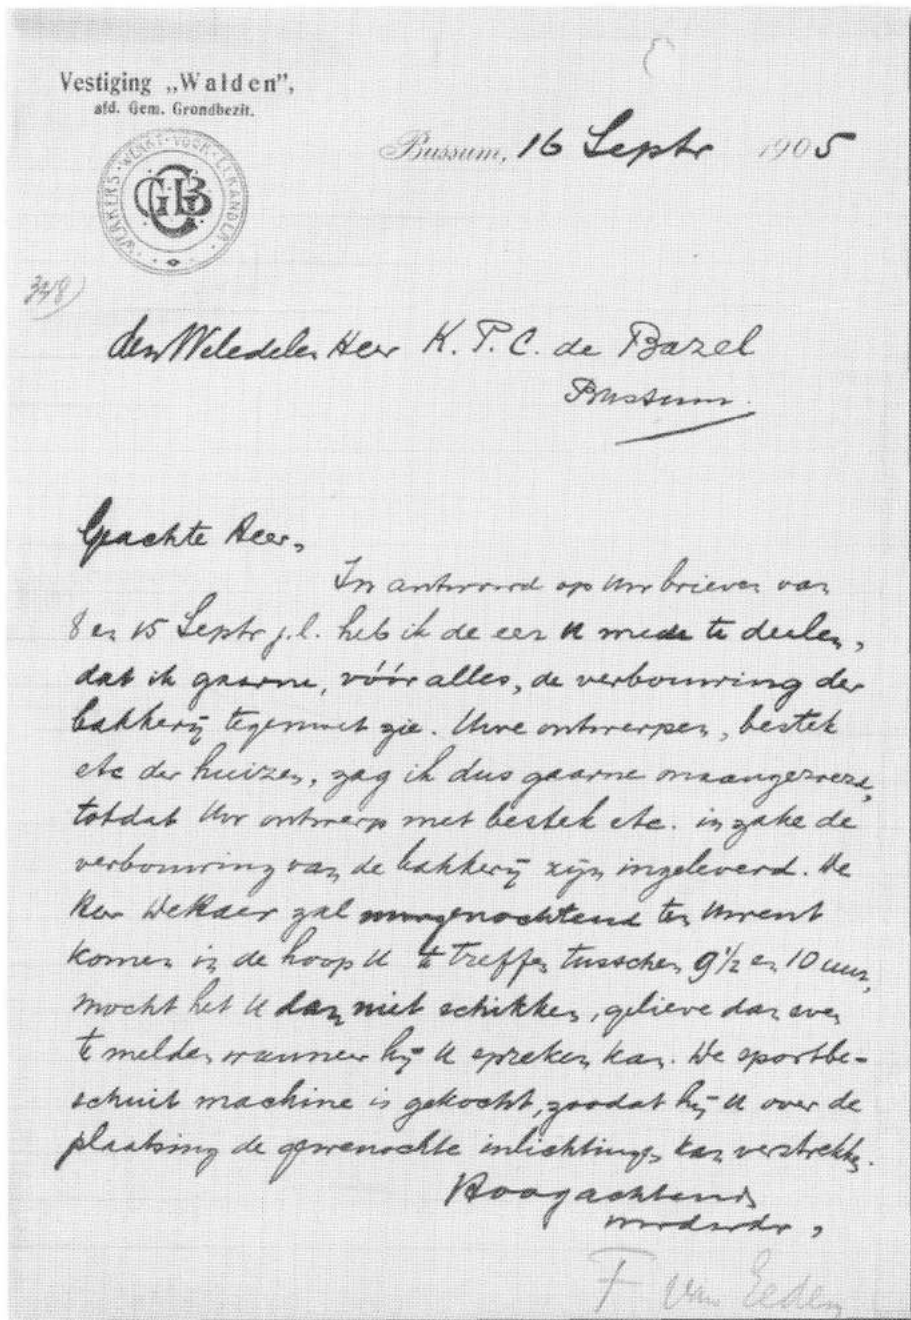 Vestiging „Walden",
afd. Gem. Grondbezit.
WERKERS · WERKT · VOOR · ELKANDER
GGB
Bussum, 16 Septr 1905
348)
den Weledelen Heer K.P.C. de Bazel
Bussum.
Geachte Heer,
In antwoord op Uw brieven van
8 en 15 Septr j.l. heb ik de eer U mede te deelen,
dat ik gaarne, vóór alles, de verbouwing der
bakkerij tegemoet zie. Uwe ontwerpen, bestek
etc der huizen, zag ik dus gaarne onaangeroerd,
totdat Uw ontwerp met bestek etc. inzake de
verbouwing van de bakkerij zijn ingeleverd. De
Heer Dekker zal morgenochtend ten Uwent
komen in de hoop U te treffen tusschen 9½ en 10 uur,
mocht het U dan niet schikken, gelieve dan even
te melden wanneer hij U spreken kan. De sportbe-
schuit machine is gekocht, zoodat hij U over de
plaatsing de gewenschte inlichtingen kan verstrekken.
Hoogachtend,
F van Eeden